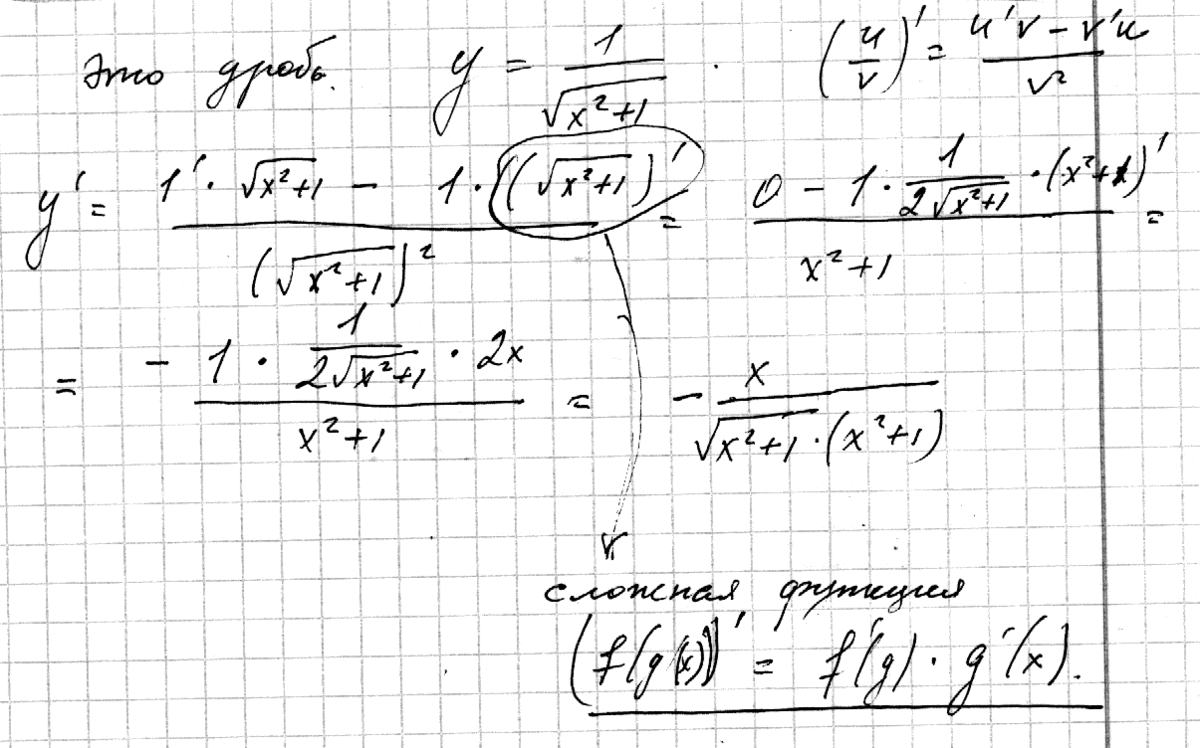 это дробь. y = 1/√(x²+1) . (u/v)' = (u'v - v'u)/v²
y' = (1' · √(x²+1) - 1 · ((√(x²+1))')/(√(x²+1))² = (0 - 1 · 1/(2√(x²+1)) · (x²+1)')/(x²+1) =
= (- 1 · 1/(2√(x²+1)) · 2x)/(x²+1) = - x/(√(x²+1) · (x²+1))
сложная функция
(f(g(x)))' = f'(g) · g'(x).